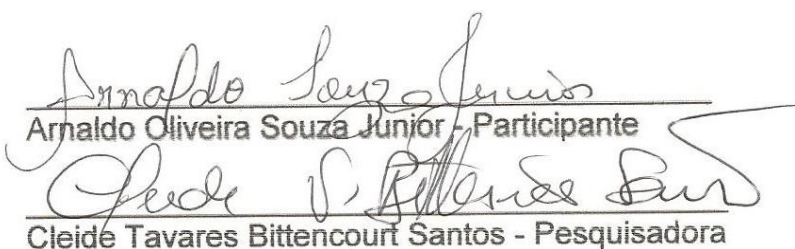 Arnaldo Souza Junior
Arnaldo Oliveira Souza Junior - Participante
Cleide
Cleide Tavares Bittencourt Santos - Pesquisadora